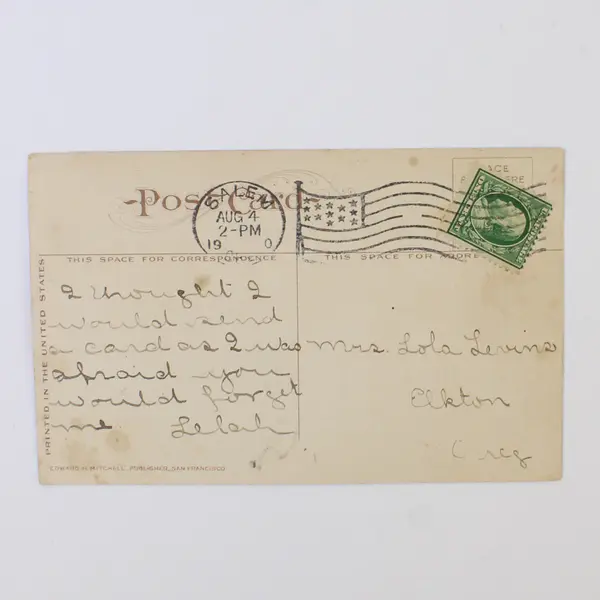 Post Card
SALEM
AUG 4
2-PM
19 0
PLACE
HERE
THIS SPACE FOR CORRESPONDENCE
THIS SPACE FOR ADDRESS
PRINTED IN THE UNITED STATES
I thought I
would send
a card as I was
afraid you
would forget
me Lelah
Mrs. Lola Levins
Elkton
Oreg
EDWARD H. MITCHELL, PUBLISHER, SAN FRANCISCO